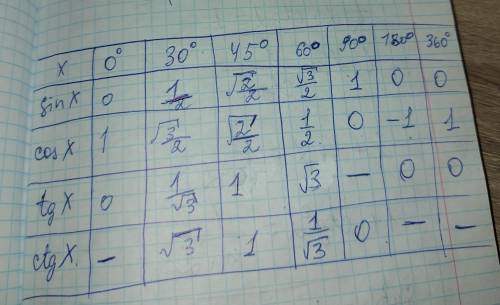 x 0° 30° 45° 60° 90° 180° 360°
sin x 0 1/2 √2/2 √3/2 1 0 0
cos x 1 √3/2 √2/2 1/2 0 -1 1
tg x 0 1/√3 1 √3 — 0 0
ctg x. — √3 1 1/√3 0 — —